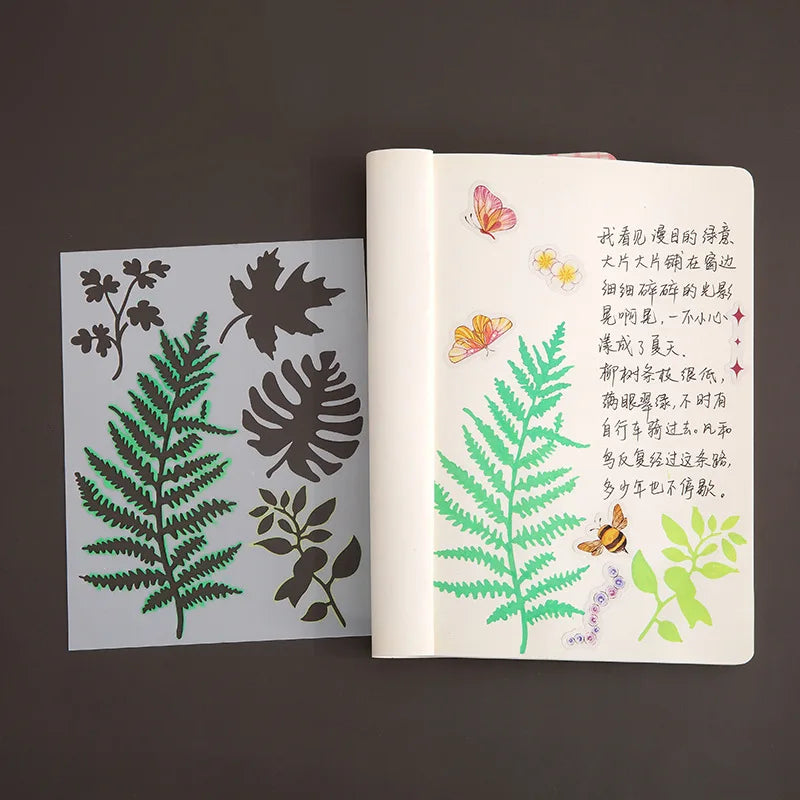 我看见漫目的绿意
大片大片铺在窗边
细细碎碎的光影
晃啊晃，一不小心
漾成了夏天.
柳树条枝很低，
满眼翠绿，不时有
自行车骑过去。风和
鸟反复经过这条路，
多少年也不停歇。